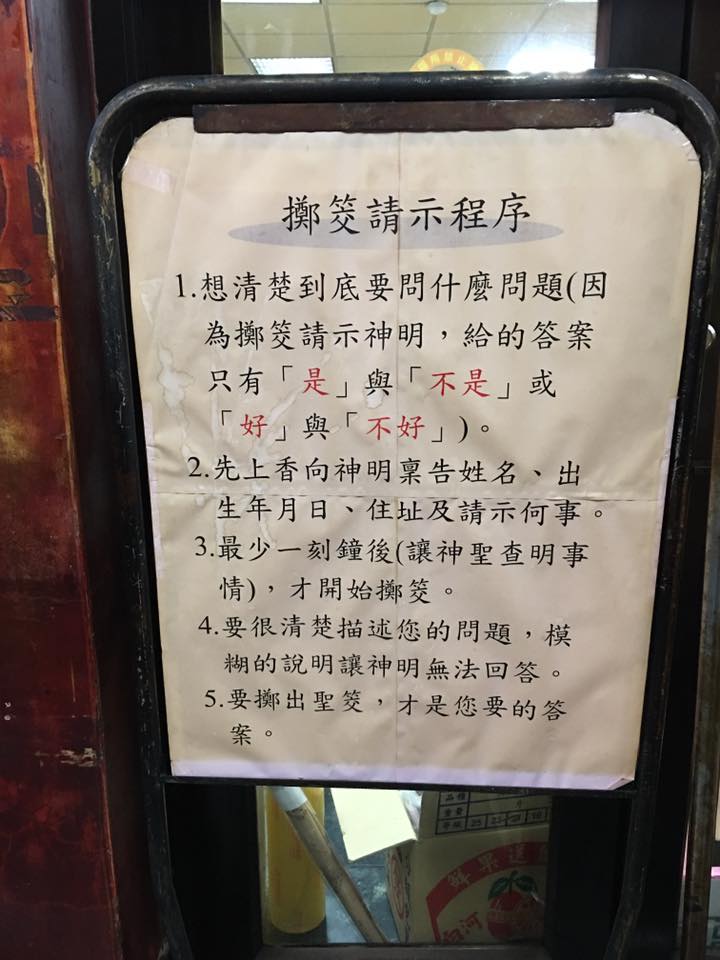 擲筊請示程序
1.想清楚到底要問什麼問題(因
為擲筊請示神明，給的答案
只有「是」與「不是」或
「好」與「不好」)。
2.先上香向神明稟告姓名、出
生年月日、住址及請示何事。
3.最少一刻鐘後(讓神聖查明事
情)，才開始擲筊。
4.要很清楚描述您的問題，模
糊的說明讓神明無法回答。
5.要擲出聖筊，才是您要的答
案。
品種
重量
等級
鮮果送
白河